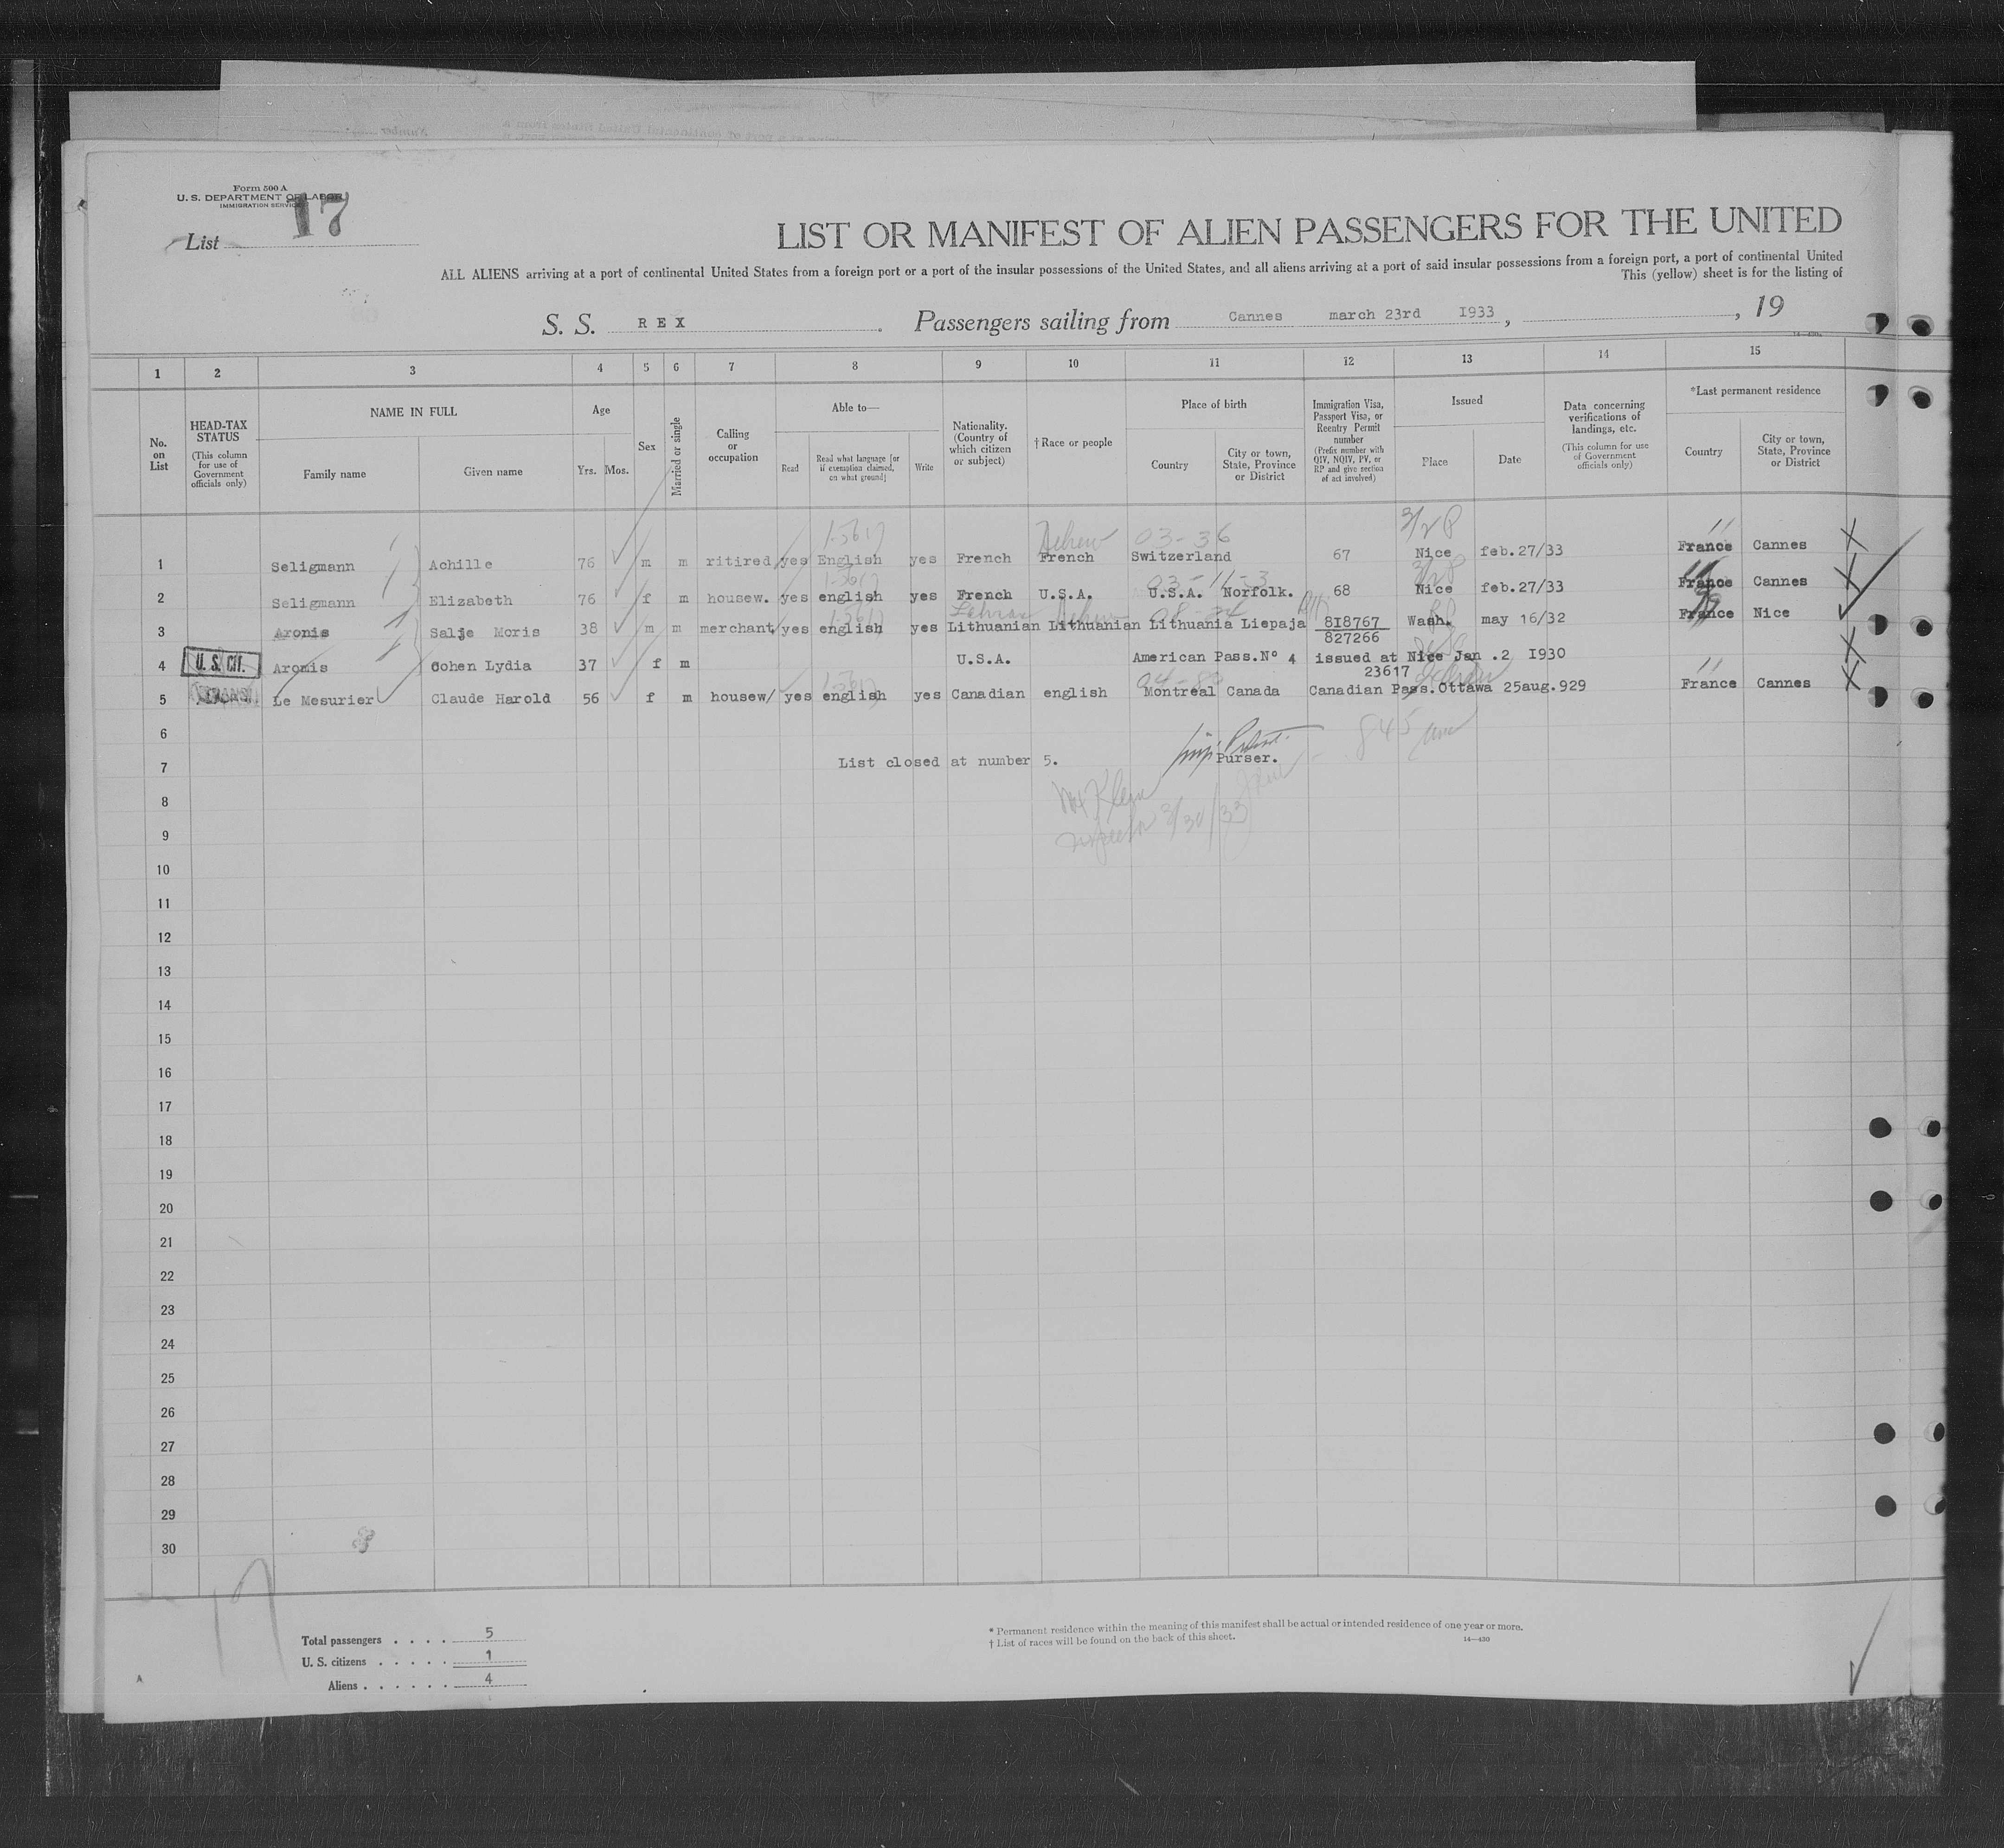 Form 500 A
U. S. DEPARTMENT OF LABOR
IMMIGRATION SERVICE
List 17
LIST OR MANIFEST OF ALIEN PASSENGERS FOR THE UNITED
ALL ALIENS arriving at a port of continental United States from a foreign port or a port of the insular possessions of the United States, and all aliens arriving at a port of said insular possessions from a foreign port, a port of continental United
This (yellow) sheet is for the listing of
S. S. R E X . Passengers sailing from Cannes march 23rd I933 , , 19
1 2 3 4 5 6 7 8 9 10 11 12 13 14 15
No. on List
HEAD-TAX STATUS (This column for use of Government officials only)
NAME IN FULL
Family name
Given name
Age
Yrs. Mos.
Sex
Married or single
Calling or occupation
Able to—
Read
Read what language [or if exemption claimed, on what ground]
Write
Nationality. (Country of which citizen or subject)
†Race or people
Place of birth
Country
City or town, State, Province or District
Immigration Visa, Passport Visa, or Reentry Permit number (Prefix number with QIV, NQIV, PV, or RP and give section of act involved)
Issued
Place
Date
Data concerning verifications of landings, etc. (This column for use of Government officials only)
*Last permanent residence
Country
City or town, State, Province or District
03-36 3/28
1 Seligmann Achille 76 m m ritired yes English yes French Hebrew French Switzerland 67 Nice feb.27/33 France Cannes
2 Seligmann Elizabeth 76 f m housew. yes english yes French U.S.A. U.S.A. Norfolk. 68 Nice feb.27/33 France Cannes
3 Aronis Salje Moris 38 m m merchant yes english yes Lithuanian Lithuanian Lithuania Liepaja 8I8767 Wash. may 16/32 France Nice
827266
4 U. S. CIT. Aronis Cohen Lydia 37 f m U.S.A. American Pass.Nº 4 issued at Nice Jan .2 I930
23617
5 Le Mesurier Claude Harold 56 f m housew/ yes english yes Canadian english Montreal Canada Canadian Pass.Ottawa 25aug.929 France Cannes
6
7 List closed at number 5. Purser.
8
9 3/30/33
10
11
12
13
14
15
16
17
18
19
20
21
22
23
24
25
26
27
28
29
30
17
Total passengers . . . . 5
U. S. citizens . . . . . 1
Aliens . . . . . . 4
* Permanent residence within the meaning of this manifest shall be actual or intended residence of one year or more.
† List of races will be found on the back of this sheet. 14—430
A